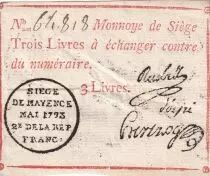 No. 64818 Monnoye de Siège
Trois Livres à échanger contre
du numéraire.
3 Livres.
SIEGE
DE MAYENCE
MAI 1793
2e DE LA REP
FRANC.